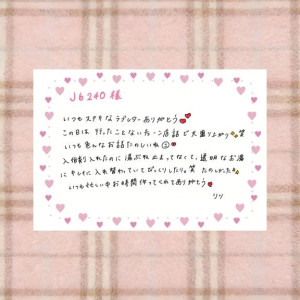 J6240様
いつもステキなラブレターありがとう
この日は行ったことないチェーン店話で大盛り上がり笑
いつも色んなお話たのしいね
入浴剤入れたのに湯ぶねよまってなくて、透明なお湯
に入れ替わっていてびっくりしたり。笑 たのしかった
いつも忙しい中お時間作ってくれてありがとう
リリ